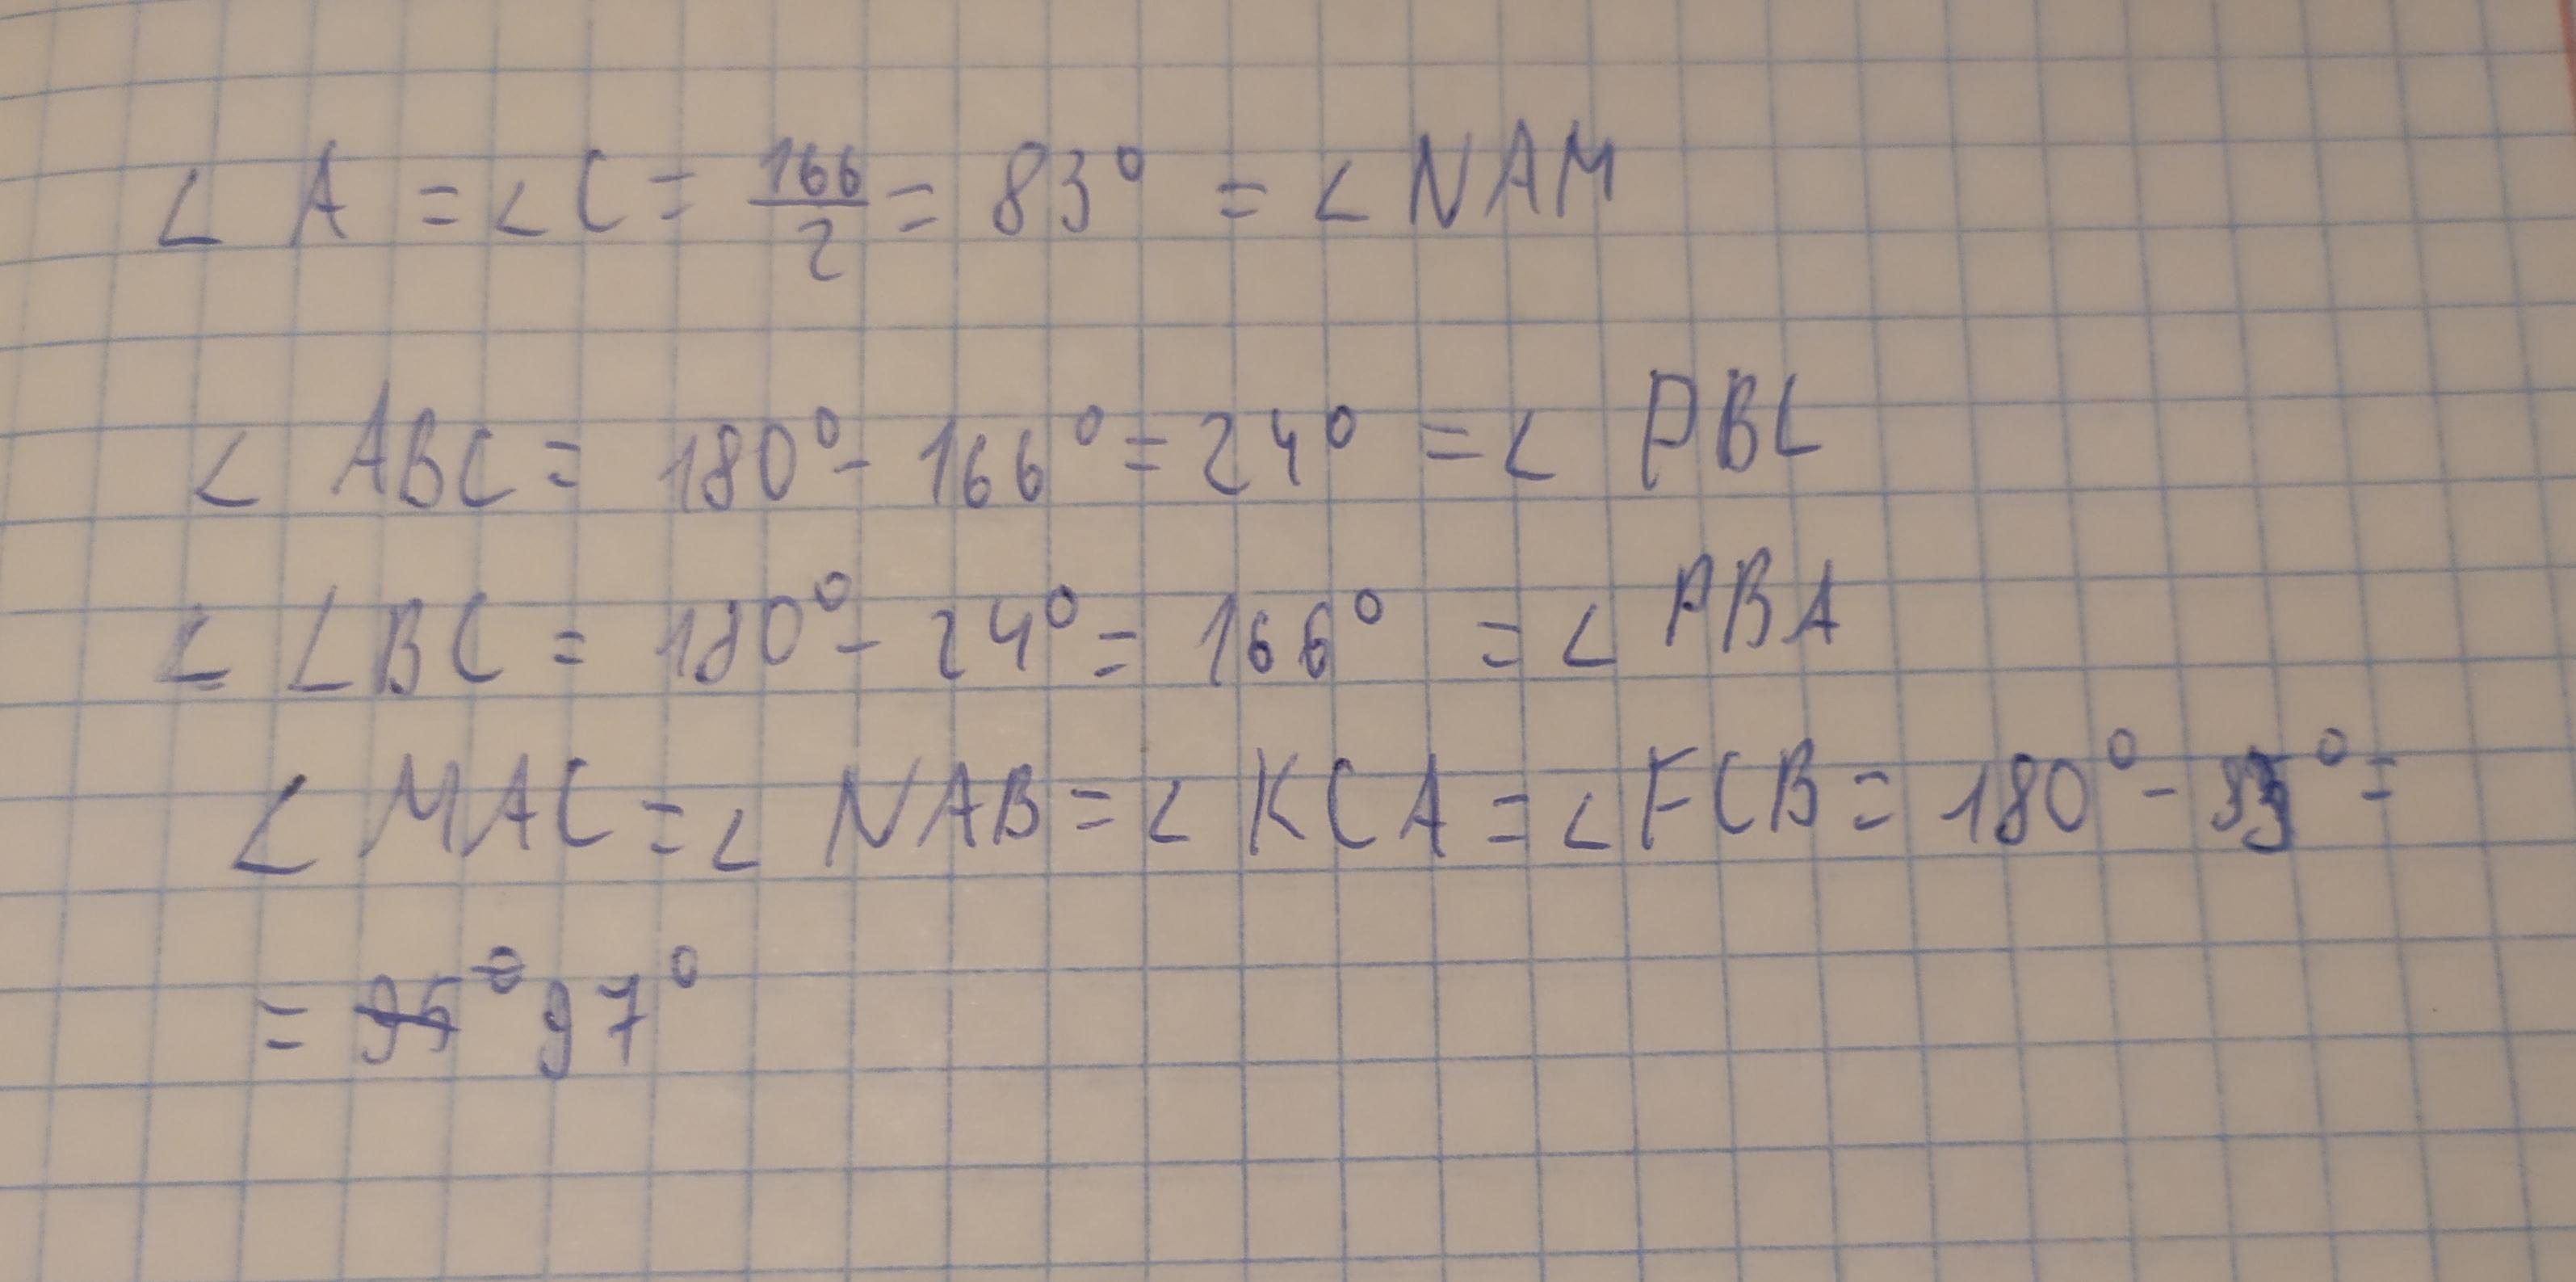 ∠ A = ∠ C = 166/2 = 83° = ∠ NAM
∠ ABC = 180° - 166° = 24° = ∠ PBL
∠ LBC = 180° - 24° = 166° = ∠ PBA
∠ MAC = ∠ NAB = ∠ KCA = ∠ FCB = 180° - 83° =
= 95° 97°